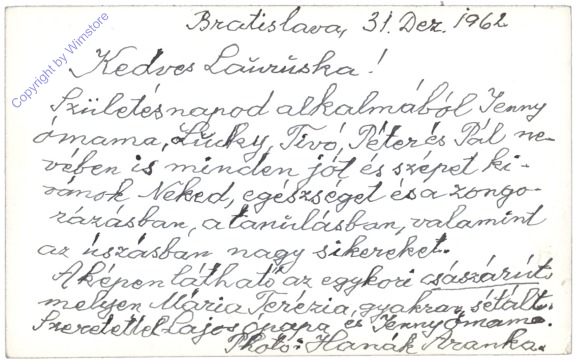 Bratislava, 31. Dez. 1962
Copyright by Wimstore
Kedves Lauruska!
Születésnapod alkalmából Jenny
ómama, Lucky, Tivó, Péter és Pál ne-
vében is minden jót és szépet ki-
vánok Neked, egészséget és a zongo-
rázásban, a tanulásban, valamint
az úszásban nagy sikereket.
A képen látható az egykori császárút
melyen Mária Terézia, gyakran sétált.
Szeretettel Lajos ópapa és Jenny ómama.
Photo: Hanák Aranka.